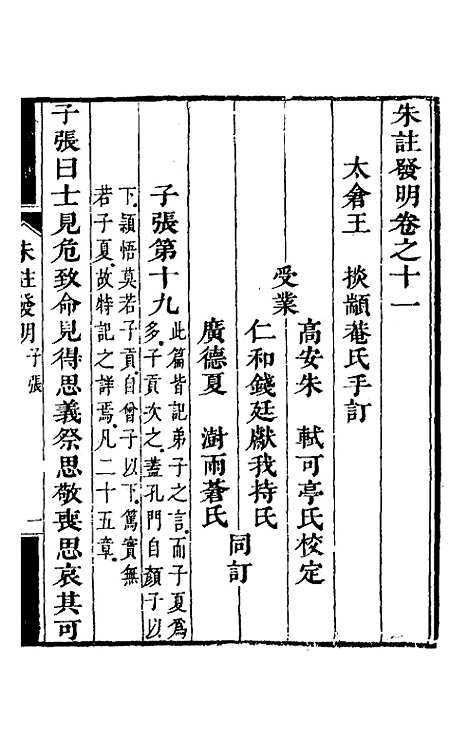 朱註發明卷之十一
太倉王　掞顓菴氏手訂
高安朱　軾可亭氏校定
受業
仁和錢廷獻我持氏
同訂
廣德夏　澍雨蒼氏
子張第十九
此篇皆記弟子之言而子夏爲
多子貢次之蓋孔門自顏子以
下穎悟莫若子貢自曾子以下篤實無
若子夏故特記之詳焉凡二十五章
子張曰士見危致命見得思義祭思敬喪思哀其可
朱註發明
子張
一